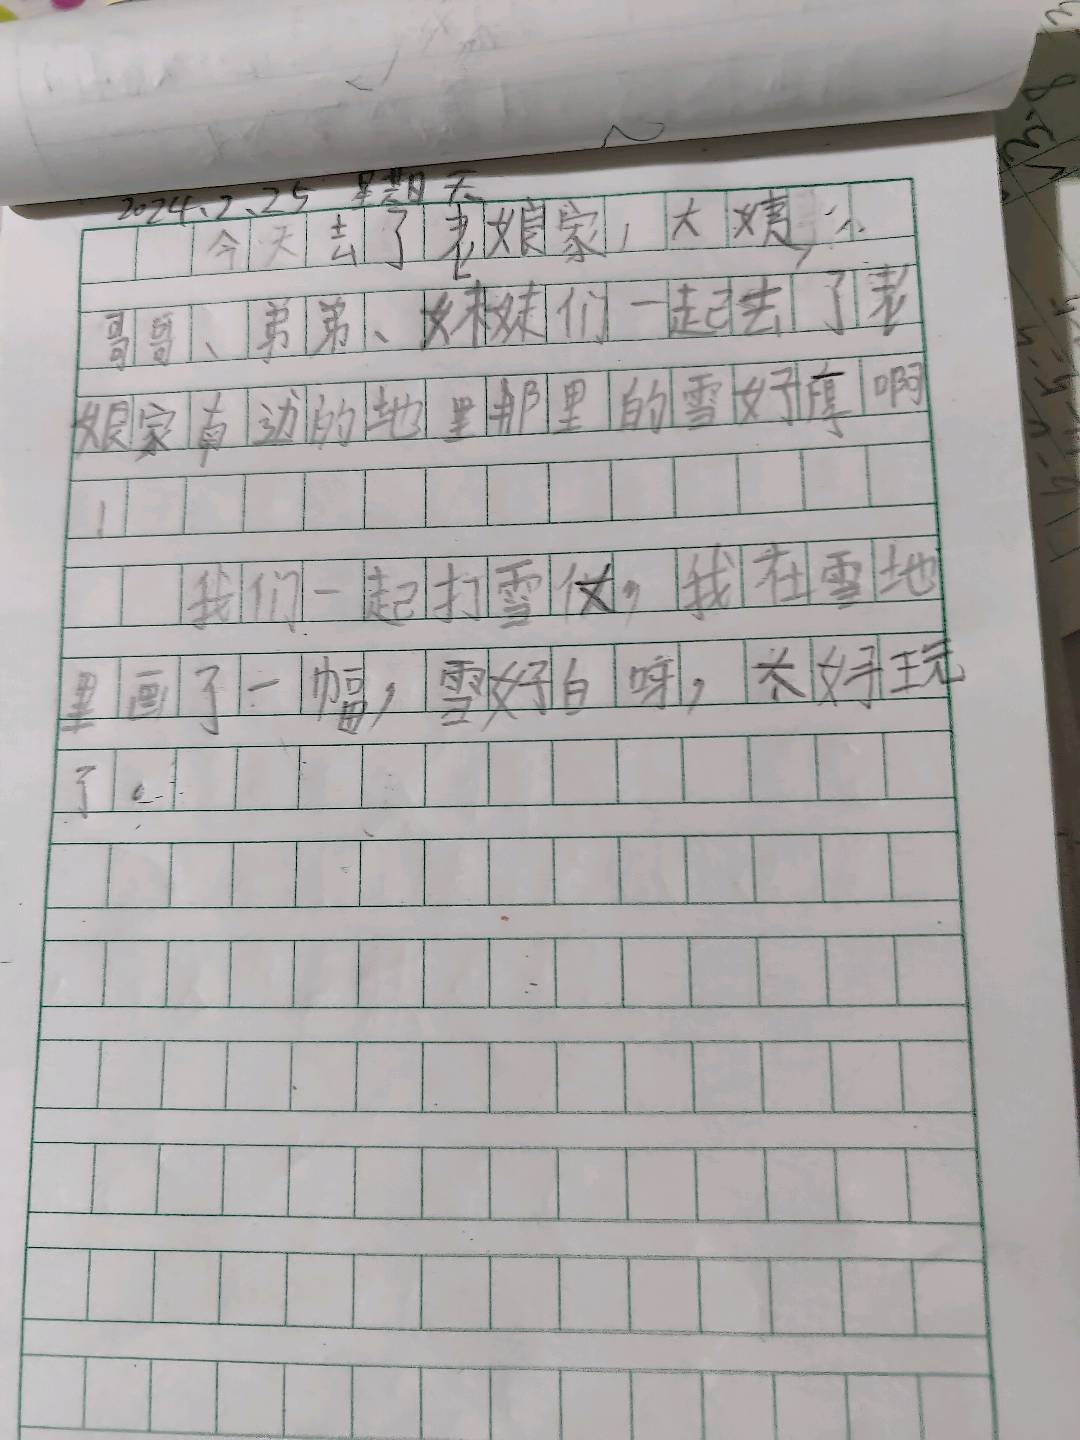 2024.2.25 星期天
今天去了老娘家，大姨，
哥哥、弟弟、妹妹们一起去了老
娘家南边的地里那里的雪好厚啊
！
我们一起打雪仗，我在雪地
里画了一幅，雪好白呀，太好玩
了。